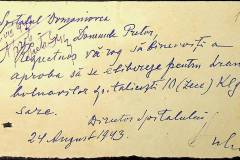 Spitalul
Domnule Pretor,
Respectuos vă rog să binevoiți a
aproba să se elibereze pentru hrana
bolnavilor spitalicești 10 (zece) Klg
sare.
Director Spitalului
24 August 1943.